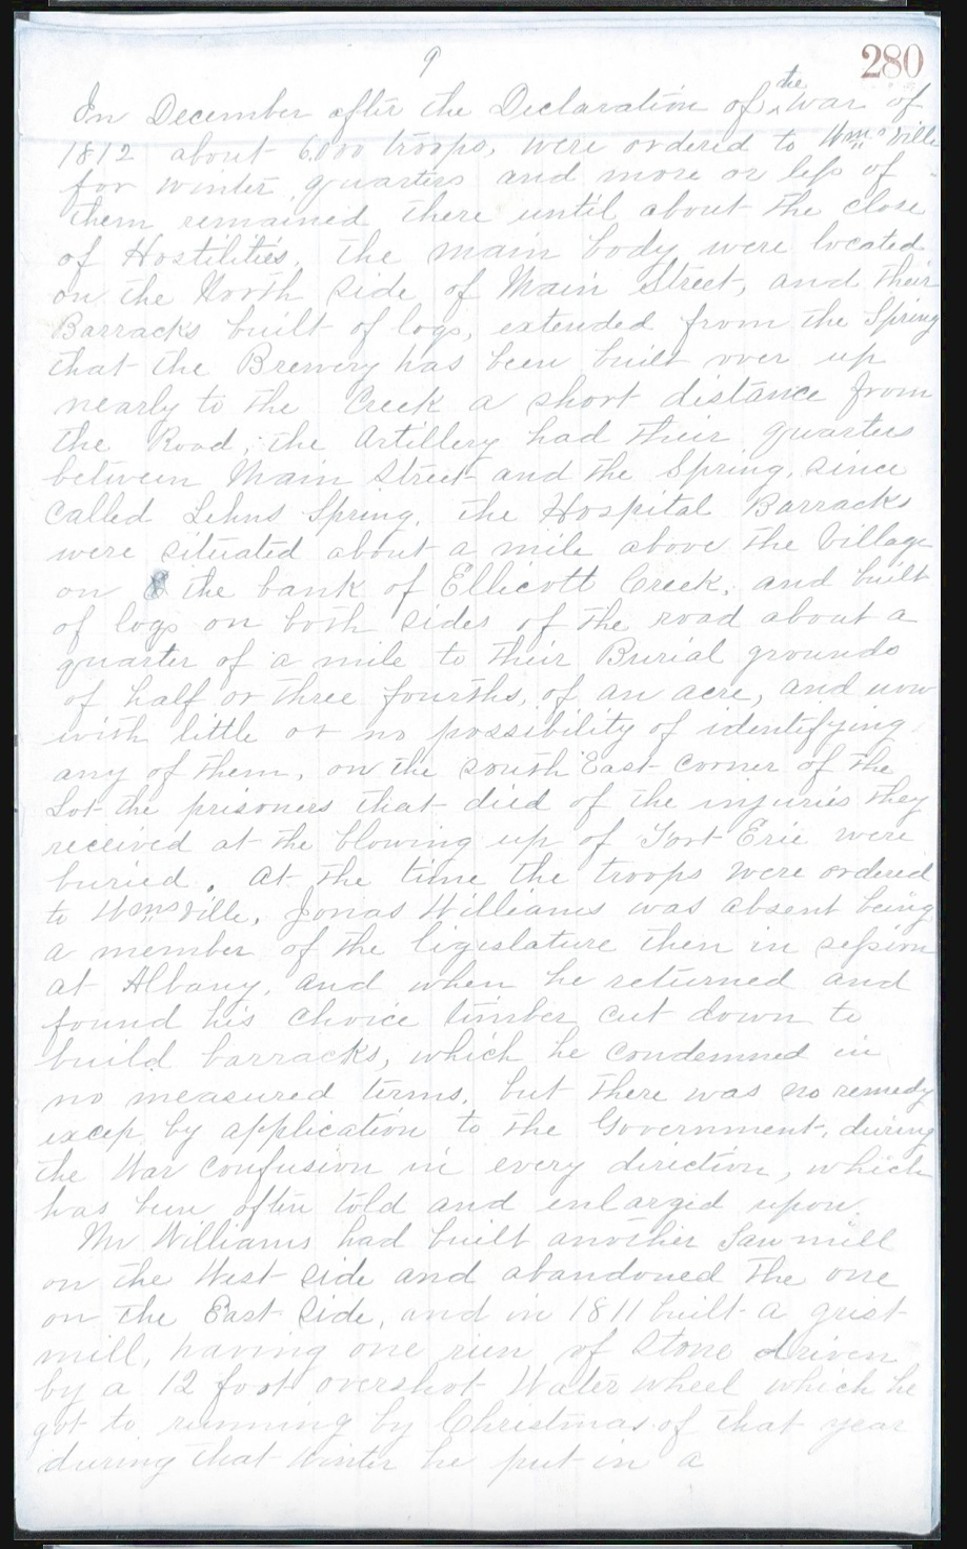 9
280
In December after the Declaration of the War of
1812 about 6000 troops, were ordered to Wmsville
for winter quarters and more or less of
them remained there until about the close
of Hostilities. The main body were located
on the North side of Main Street, and their
Barracks built of logs, extended from the Spring
that the Brewery has been built over up
nearly to the Creek a short distance from
the Road, the Artillery had their quarters
between Main Street and the Spring, since
called Lehns Spring. The Hospital Barracks
were situated about a mile above the Village
on the bank of Ellicott Creek, and built
of logs on both sides of the road about a
quarter of a mile to their Burial grounds
of half or three fourths, of an acre, and now
with little or no possibility of identifying
any of them, on the south East corner of the
Lot the prisoners that died of the injuries they
received at the blowing up of Fort Erie were
buried. At the time the troops were ordered
to Wmsville, Jonas Williams was absent being
a member of the ligislature then in session
at Albany, and when he returned and
found his choice timber cut down to
build barracks, which he condemned in
no measured terms, but there was no remedy
excep by application to the Government, during
the War confusion in every direction, which
has been often told and enlarged upon.
Mr Williams had built another Saw mill
on the West side and abandoned the one
on the East side, and in 1811 built a grist
mill, having one run of stone driven
by a 12 foot overshot Water wheel which he
got to running by Christmas of that year
during that Winter he put in a